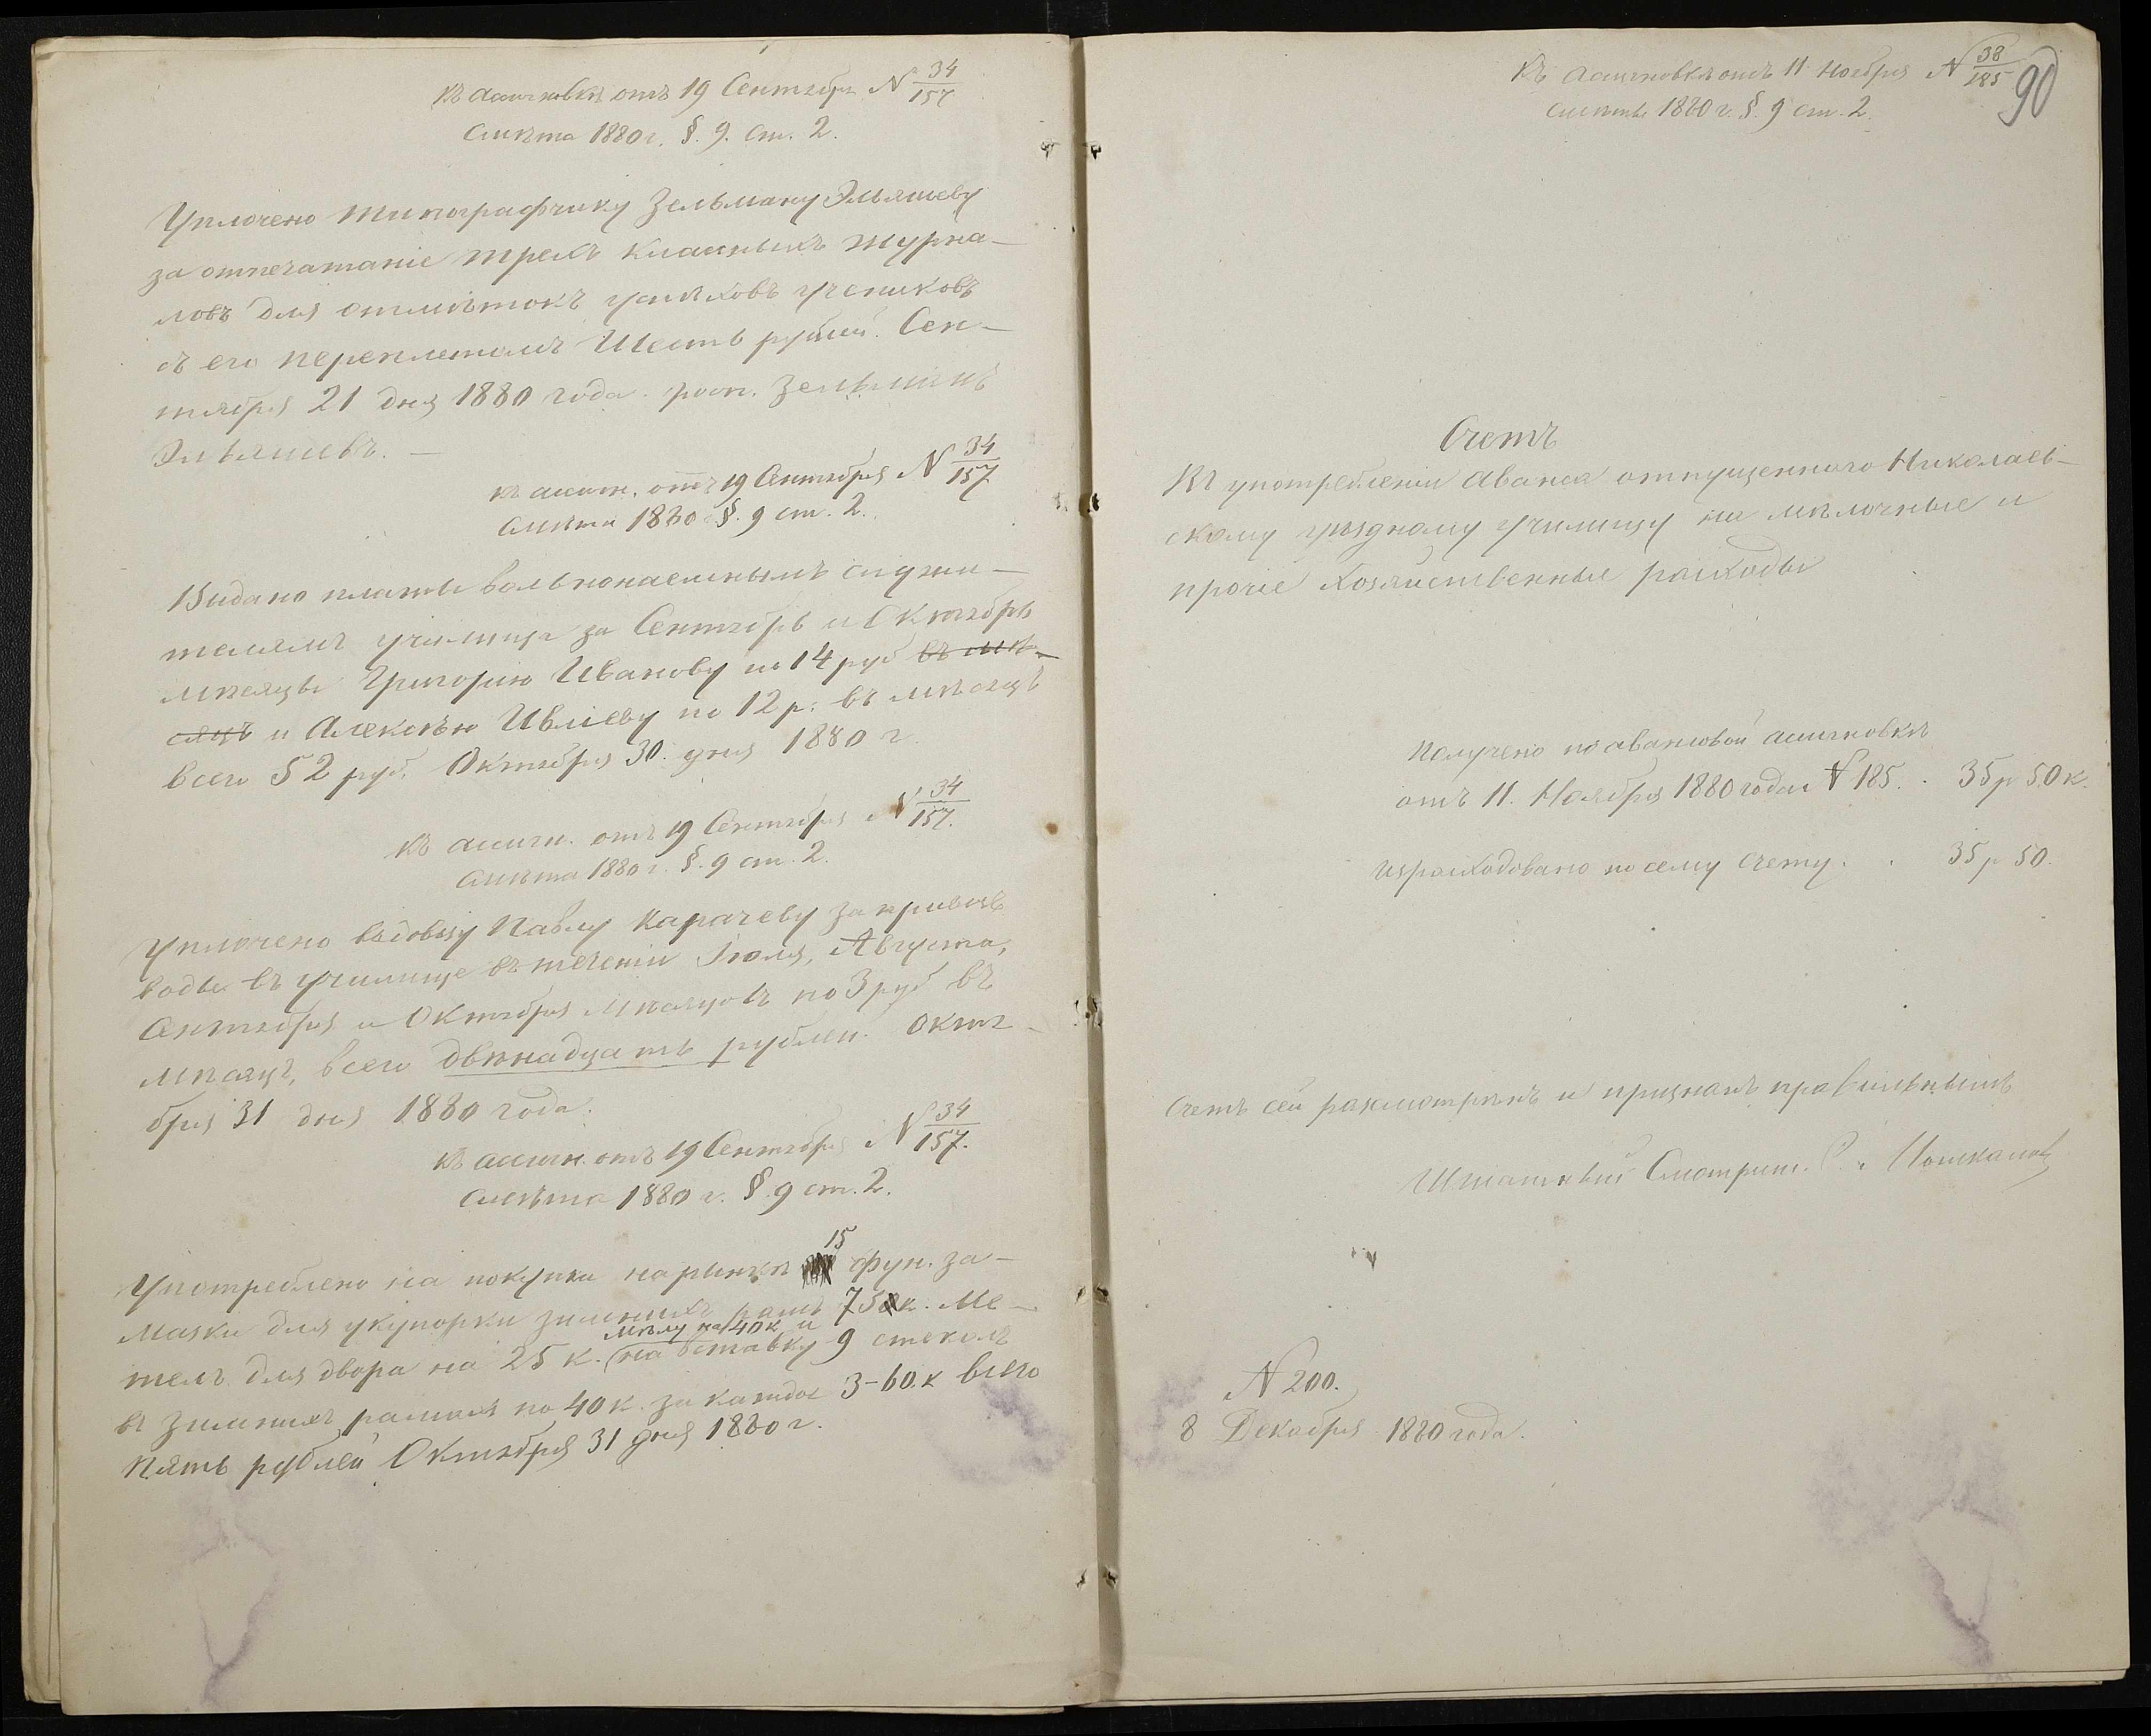 къ ассигновкѣ отъ 19 Сентября N 34/157
Смѣта 1880 г. §. 9. ст. 2.
Уплочено типографчику Зельману Эльяшеву
за отпечатаніе трехъ классныхъ журна-
ловъ для отмѣтокъ успѣховъ учениковъ
съ его переплетомъ Шесть рублей. Сен-
тября 21 дня 1880 года. росп. Зельманъ
Эльяшевъ. —
къ ассигн. отъ 19 Сентября N 34/157
Смѣта 1880 г. §. 9 ст. 2.
Видано платы вольнонаемнымъ служи-
телямъ училища за Сентябрь и Октябрь
мѣсяцы Григорію Иванову по 14 руб въ мѣ-
сяцъ и Алексѣю Ивлiеву по 12 р. въ мѣсяцъ
всего 52 руб. Октября 30. дня 1880 г.
къ ассигн. отъ 19 Сентября N 34/157.
Смѣта 1880 г. §. 9 ст. 2.
Уплочено водовозу Павлу Карачеву за привозъ
воды въ училище въ теченіи Іюля, Августа,
Сентября и Октября мѣсяцовъ по 3 руб въ
мѣсяцъ, всего двѣнадцать рублей. Октя-
бря 31 дня 1880 года.
къ ассигн. отъ 19 Сентября N 34/157.
Смѣта 1880 г. §. 9 ст. 2.
15
Употреблено на покупки на рынкѣ фун. за-
мазки для укупорки зимнихъ рамъ 75 к. Ме-
мѣлу на 40 к и
телъ для двора на 25 к. на вставку 9 стеколъ
въ зимнихъ рамахъ по 40 к. за каждое 3-60. к всего
Пять рублей Октября 31 дня 1880 г.
Къ ассигновкѣ отъ 11 Ноября N 38/185
90
Смѣты 1880 г. §. 9 ст. 2.
Счетъ
Къ употребленiи аванса отпущеннаго Николаев-
скому уѣздному училищу на мѣлочные и
прочіе хозяйственные расходы
Получено по авансовой ассигновкѣ
отъ 11. Ноября 1880 года N 185. . 35 р 50 к.
Израсходовано по сему счету. . 35 р 50.
Счетъ сей разсмотрѣнъ и признанъ правильнымъ
Штатный Смотрит.
N 200.
8 Декабря 1880 года.